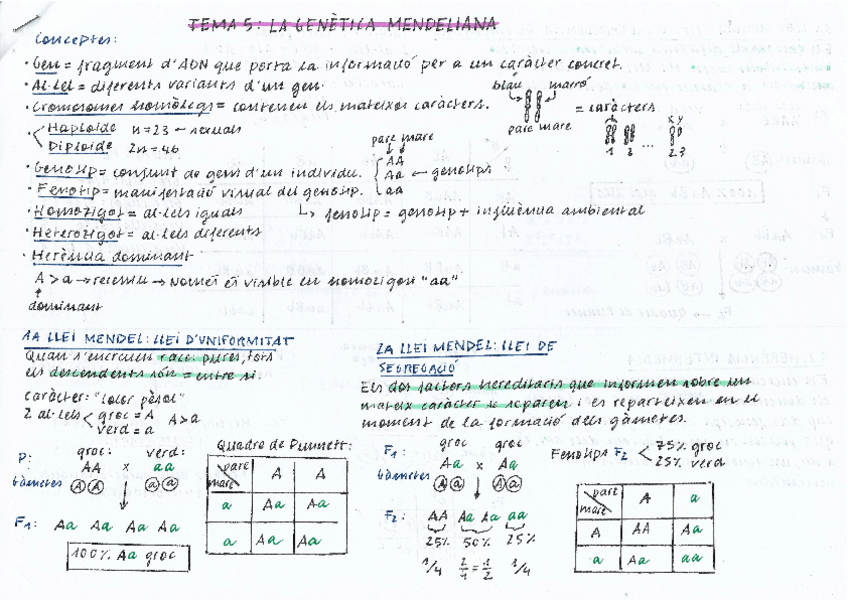 TEMA 5: LA GENÈTICA MENDELIANA
Conceptes:
· Gen = fragment d'ADN que porta la informació per a un caràcter concret.
· Al·lel = diferents variants d'un gen.
blau marró
· Cromosomes homòlegs = contenen els mateixos caràcters.
pare mare
= caràcters
x y
1 2 ... 23
· Haploide n=23 → sexuals
Diploide 2n=46
pare mare
· Genotip = conjunt de gens d'un individu.
AA
Aa ← genotips
aa
· Fenotip = manifestació visual del genotip.
↳ fenotip = genotip + influència ambiental
· Homozigot = al·lels iguals
· Heterozigot = al·lels diferents
· Herència dominant
A > a → recessiu → només és visible en homozigosi "aa"
dominant
1A LLEI MENDEL: LLEI D'UNIFORMITAT
Quan s'encreuen races pures, tots
els descendents són = entre si.
caràcter: "color pèsol"
2 al·lels groc = A
verd = a
A > a
P: groc: verd:
AA x aa
Gàmetes A A a a
F1: Aa Aa Aa Aa
100% Aa groc
Quadre de Punnett:
pare A A
mare
a Aa Aa
a Aa Aa
2A LLEI MENDEL: LLEI DE
SEGREGACIÓ
Els dos factors hereditaris que informen sobre un
mateix caràcter se separen i es reparteixen en el
moment de la formació dels gàmetes.
F1: groc groc
Aa x Aa
Gàmetes A a A a
F2: AA Aa Aa aa
25% 50% 25%
1/4 2/4 = 1/2 1/4
Fenotips F2 75% groc
25% verd
pare A a
mare
A AA Aa
a Aa aa